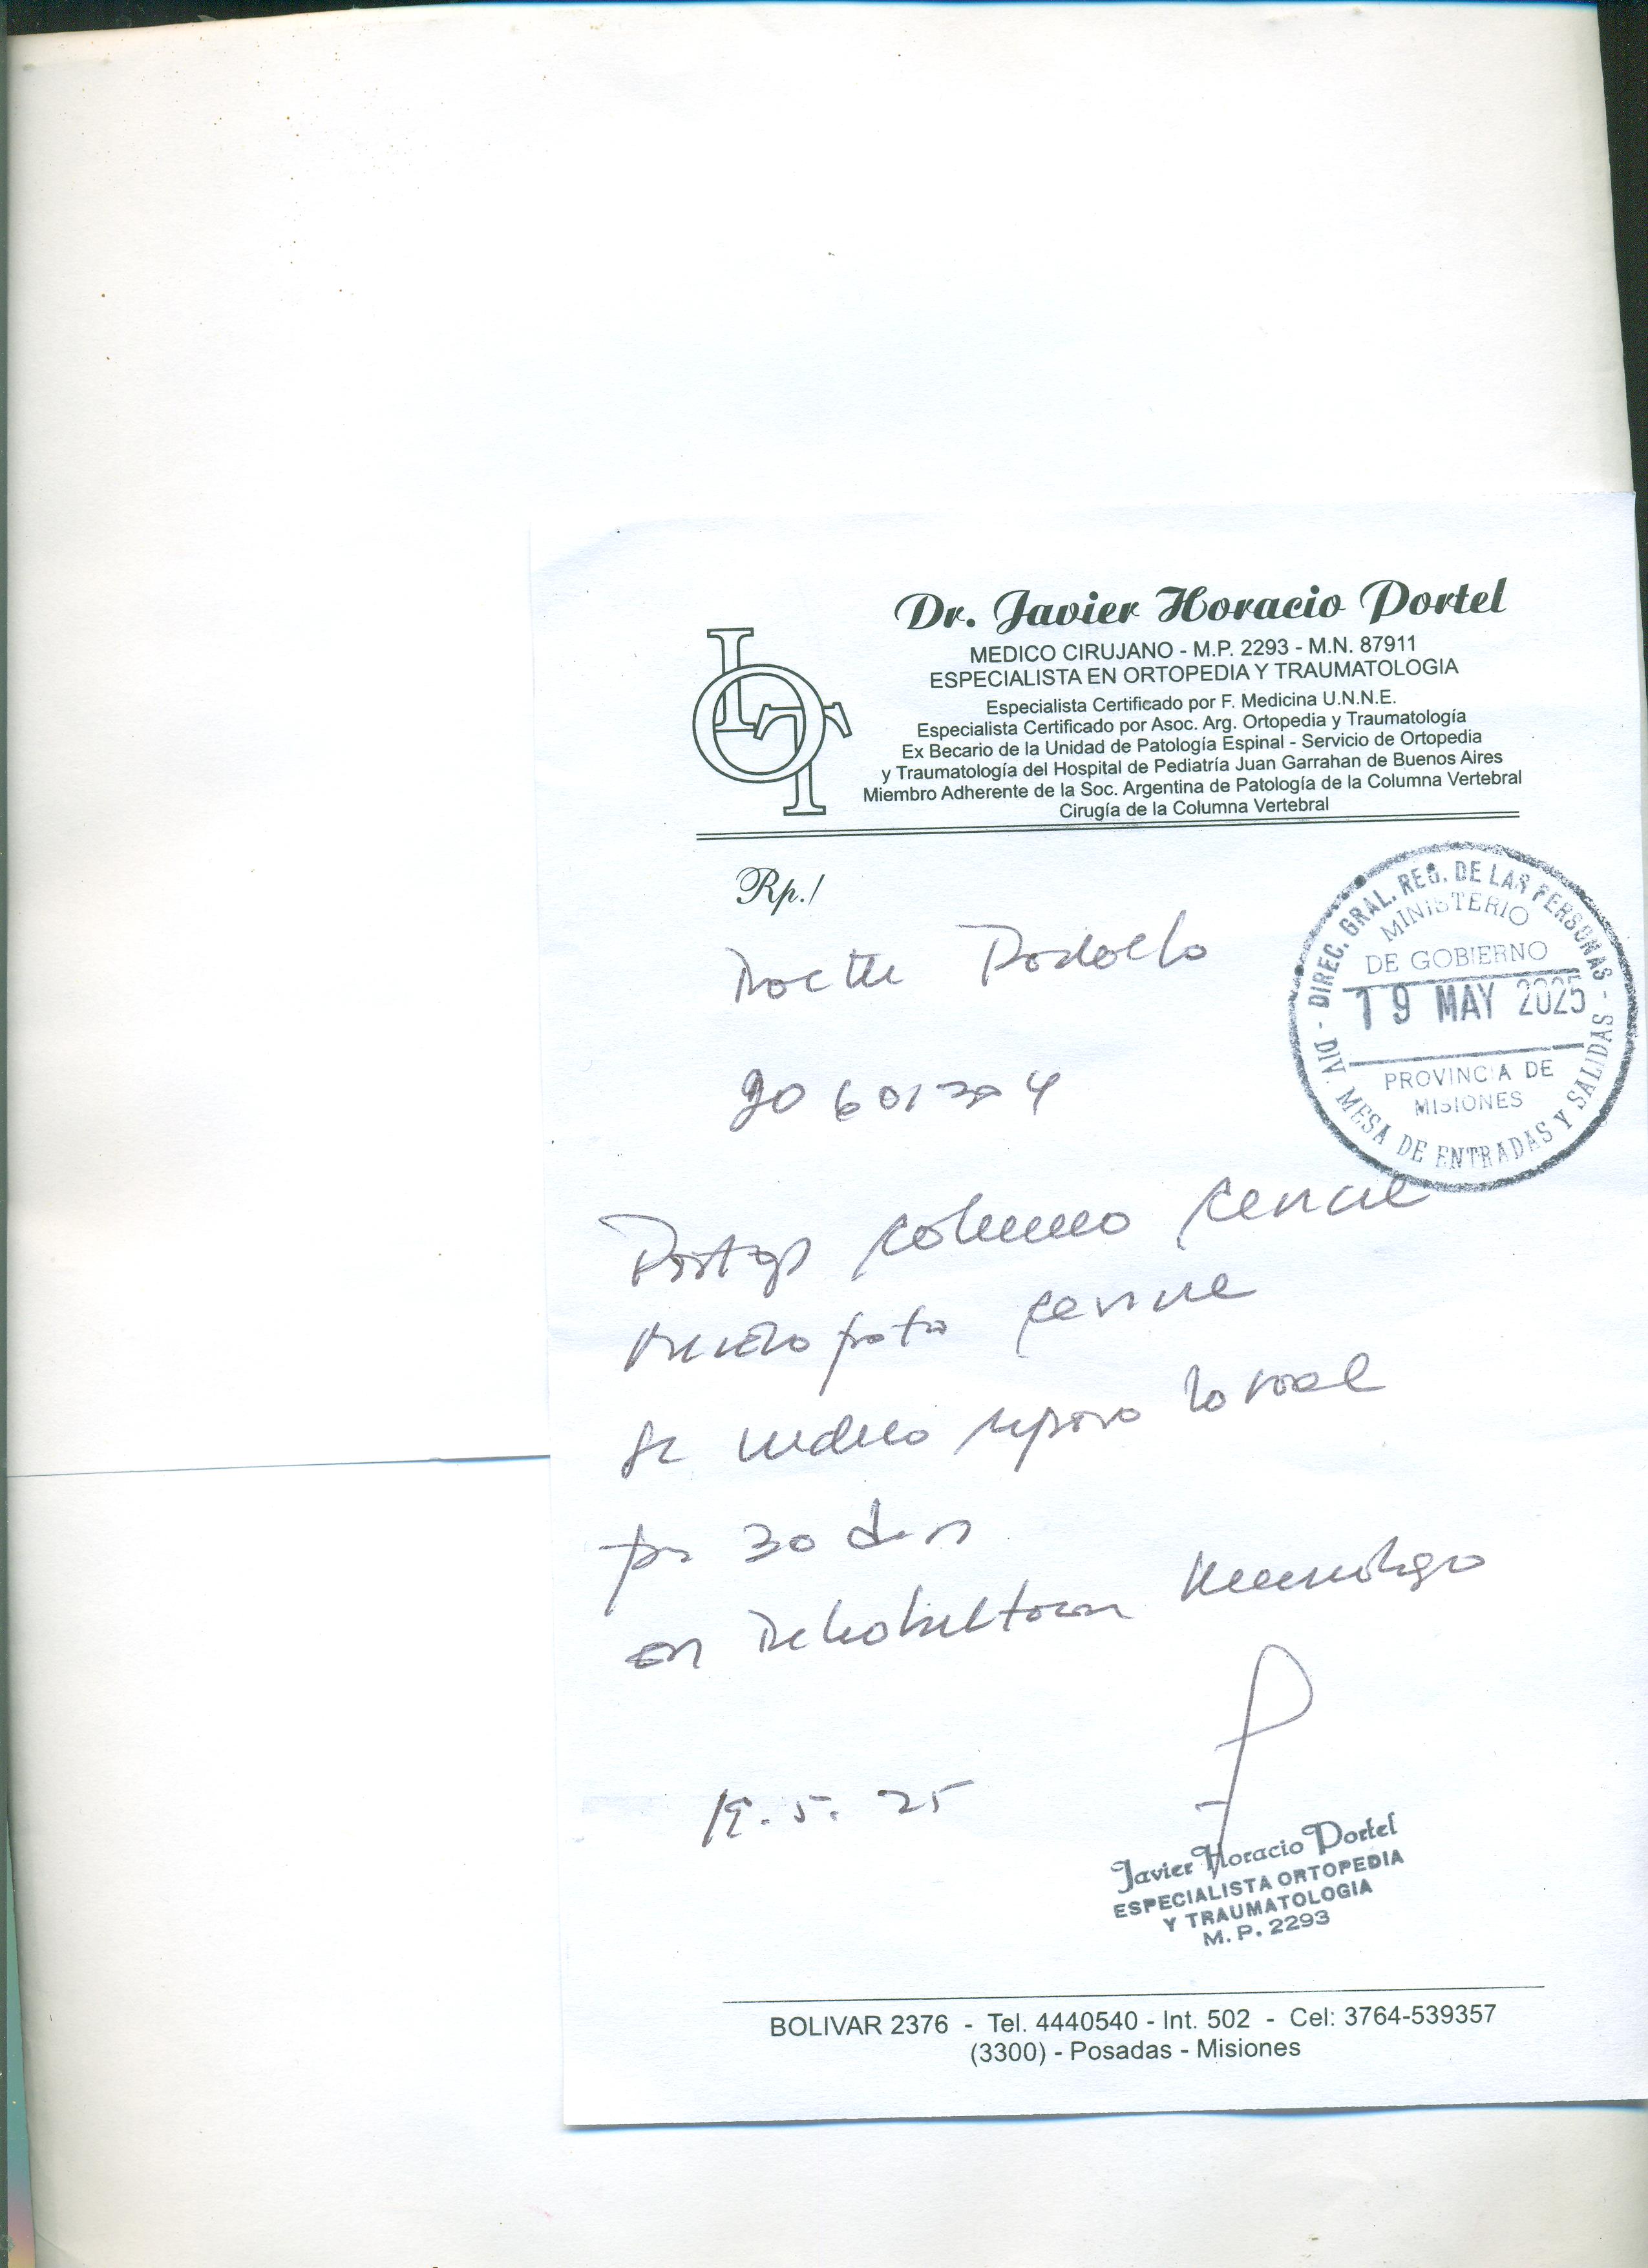 Dr. Javier Horacio Portel
MEDICO CIRUJANO - M.P. 2293 - M.N. 87911
ESPECIALISTA EN ORTOPEDIA Y TRAUMATOLOGIA
Especialista Certificado por F. Medicina U.N.N.E.
Especialista Certificado por Asoc. Arg. Ortopedia y Traumatología
Ex Becario de la Unidad de Patología Espinal - Servicio de Ortopedia
y Traumatología del Hospital de Pediatría Juan Garrahan de Buenos Aires
Miembro Adherente de la Soc. Argentina de Patología de la Columna Vertebral
Cirugía de la Columna Vertebral
Rp./
DIREC. GRAL. REG. DE LAS PERSONAS
MINISTERIO
DE GOBIERNO
19 MAY 2025
PROVINCIA DE
MISIONES
DIV. MESA DE ENTRADAS Y SALIDAS
Rodolfo
columna cervical
cervical
se indica reposo laboral
por 30 dias
en Rehabilitacion
19.5.25
Javier Horacio Portel
ESPECIALISTA ORTOPEDIA
Y TRAUMATOLOGIA
M. P. 2293
BOLIVAR 2376 - Tel. 4440540 - Int. 502 - Cel: 3764-539357
(3300) - Posadas - Misiones